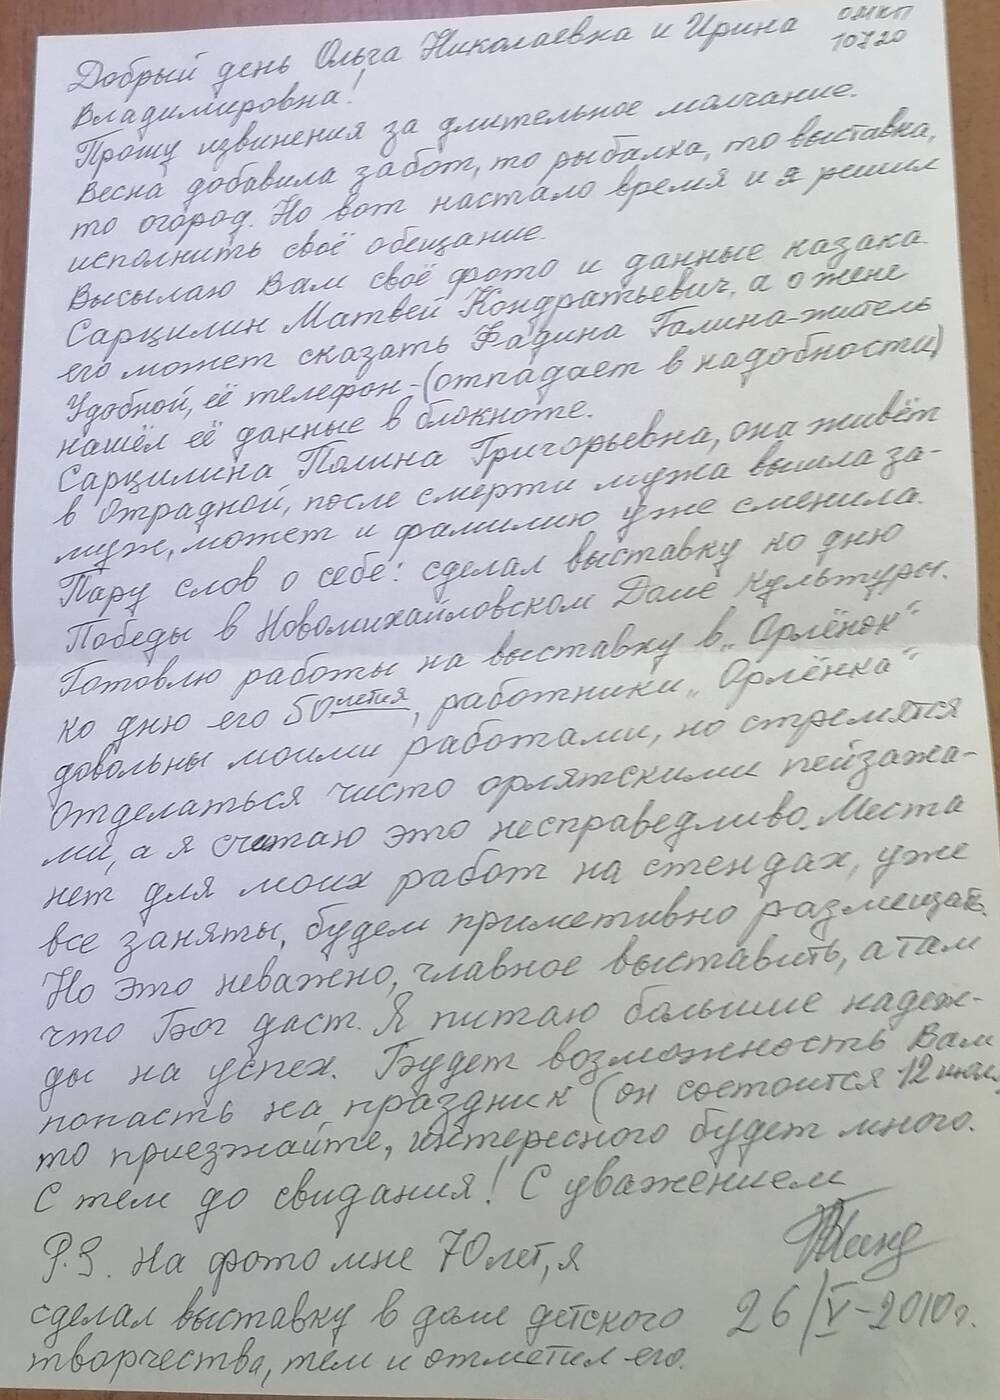 ОМКП
10720
Добрый день Ольга Николаевна и Ирина
Владимировна!
Прошу извинения за длительное молчание.
Весна добавила забот, то рыбалка, то выставка,
то огород. Но вот настало время и я решил
исполнить своё обещание.
Высылаю Вам своё фото и данные казака.
Сарцилин Матвей Кондратьевич, а о жене
его может сказать Фадина Галина-житель
Удобной, её телефон-(отпадает в надобности)
нашёл её данные в блокноте.
Сарцилина Полина Григорьевна, она живёт
в Отрадной, после смерти мужа вышла за-
муж, может и фамилию уже сменила.
Пару слов о себе: сделал выставку ко дню
Победы в Новомихайловском Доме Культуры.
Готовлю работы на выставку в „Орлёнок"
ко дню его 50летия, работники „Орлёнка"
довольны моими работами, но стремятся
отделаться чисто орлятскими пейзажа-
ми, а я считаю это несправедливо. Места
нет для моих работ на стендах, уже
все заняты, будем приметивно размещать.
Но это неважно, главное выставить, а там
что Бог даст. Я питаю большие надеж-
ды на успех. Будет возможность Вам
попасть на праздник (он состоится 12
то приезжайте, интересного будет много.
С тем до свидания! С уважением
P.S. На фото мне 70 лет, я
сделал выставку в доме детского
творчества, тем и отметил его.
26/V-2010г.